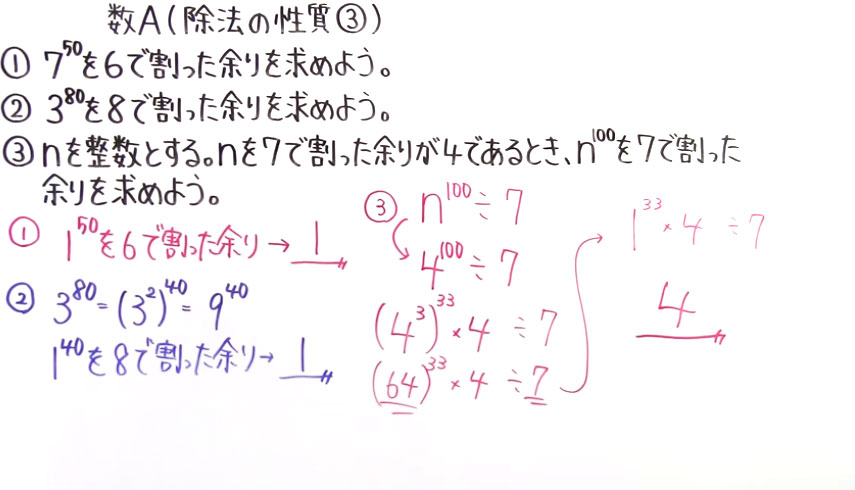 数A(除法の性質③)
① 7^50を6で割った余りを求めよう。
② 3^80を8で割った余りを求めよう。
③ nを整数とする。nを7で割った余りが4であるとき、n^100を7で割った
余りを求めよう。
① 1^50を6で割った余り→1
② 3^80=(3^2)^40=9^40
1^40を8で割った余り→1
③ n^100÷7
4^100÷7
(4^3)^33×4÷7
(64)^33×4÷7
1^33×4÷7
4